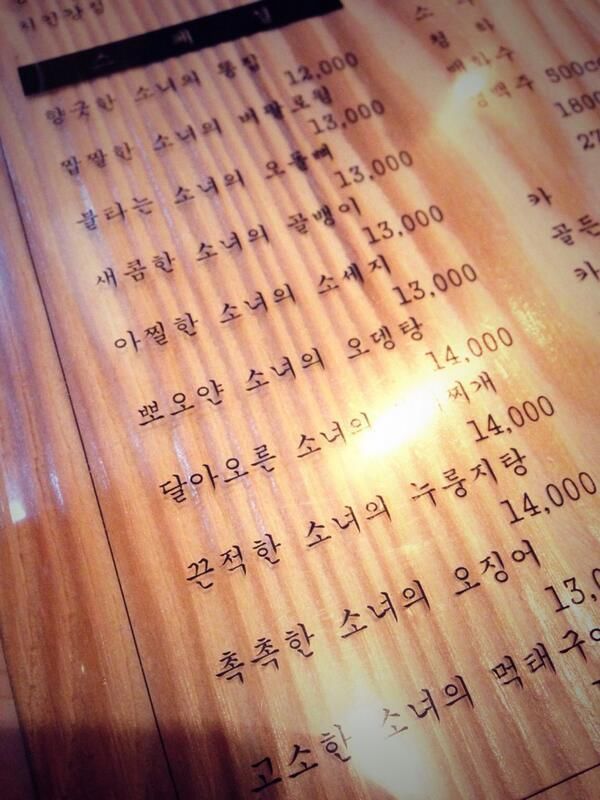 스 페 셜
향긋한 소녀의 똥집 12,000
짭짤한 소녀의 버팔로윙 13,000
불타는 소녀의 오돌뼈 13,000
새콤한 소녀의 골뱅이 13,000
아찔한 소녀의 소세지 13,000
뽀오얀 소녀의 오뎅탕 14,000
달아오른 소녀의 찌개 14,000
끈적한 소녀의 누룽지탕 14,000
촉촉한 소녀의 오징어 13,0
고소한 소녀의 먹태구이
소 주
청 하
매화수
백주 500cc
1800
27
카
골든
카